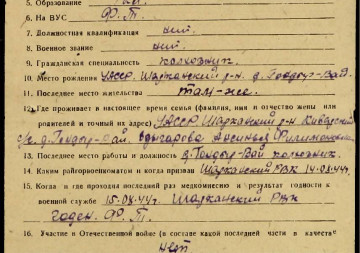 5. Образование
6. На ВУС Ф. Т.
7. Должностная квалификация нет.
8. Военное звание нет.
9. Гражданская специальность колхозник.
10. Место рождения УАССР, Шарканский р-н. д. Гондыр-Вай
11. Последнее место жительства там-же.
12. Где проживает в настоящее время семья (фамилия, имя и отчество жены или
родителей и точный их адрес) УАССР Шарканский р-н
с/с. д. Гондыр-вай.
13. Последнее место работы и должность д. Гондыр-Вай колхозник.
14. Каким райгорвоенкоматом и когда призван Шарканский РВК 14.08.44г.
15. Когда и где проходил последний раз медкомиссию и результат годности к
военной службе 15.08.44г. Шарканский РВК
годен. Ф. Т.
16. Участие в Отечественной войне (в составе какой последней части и в качестве
нет